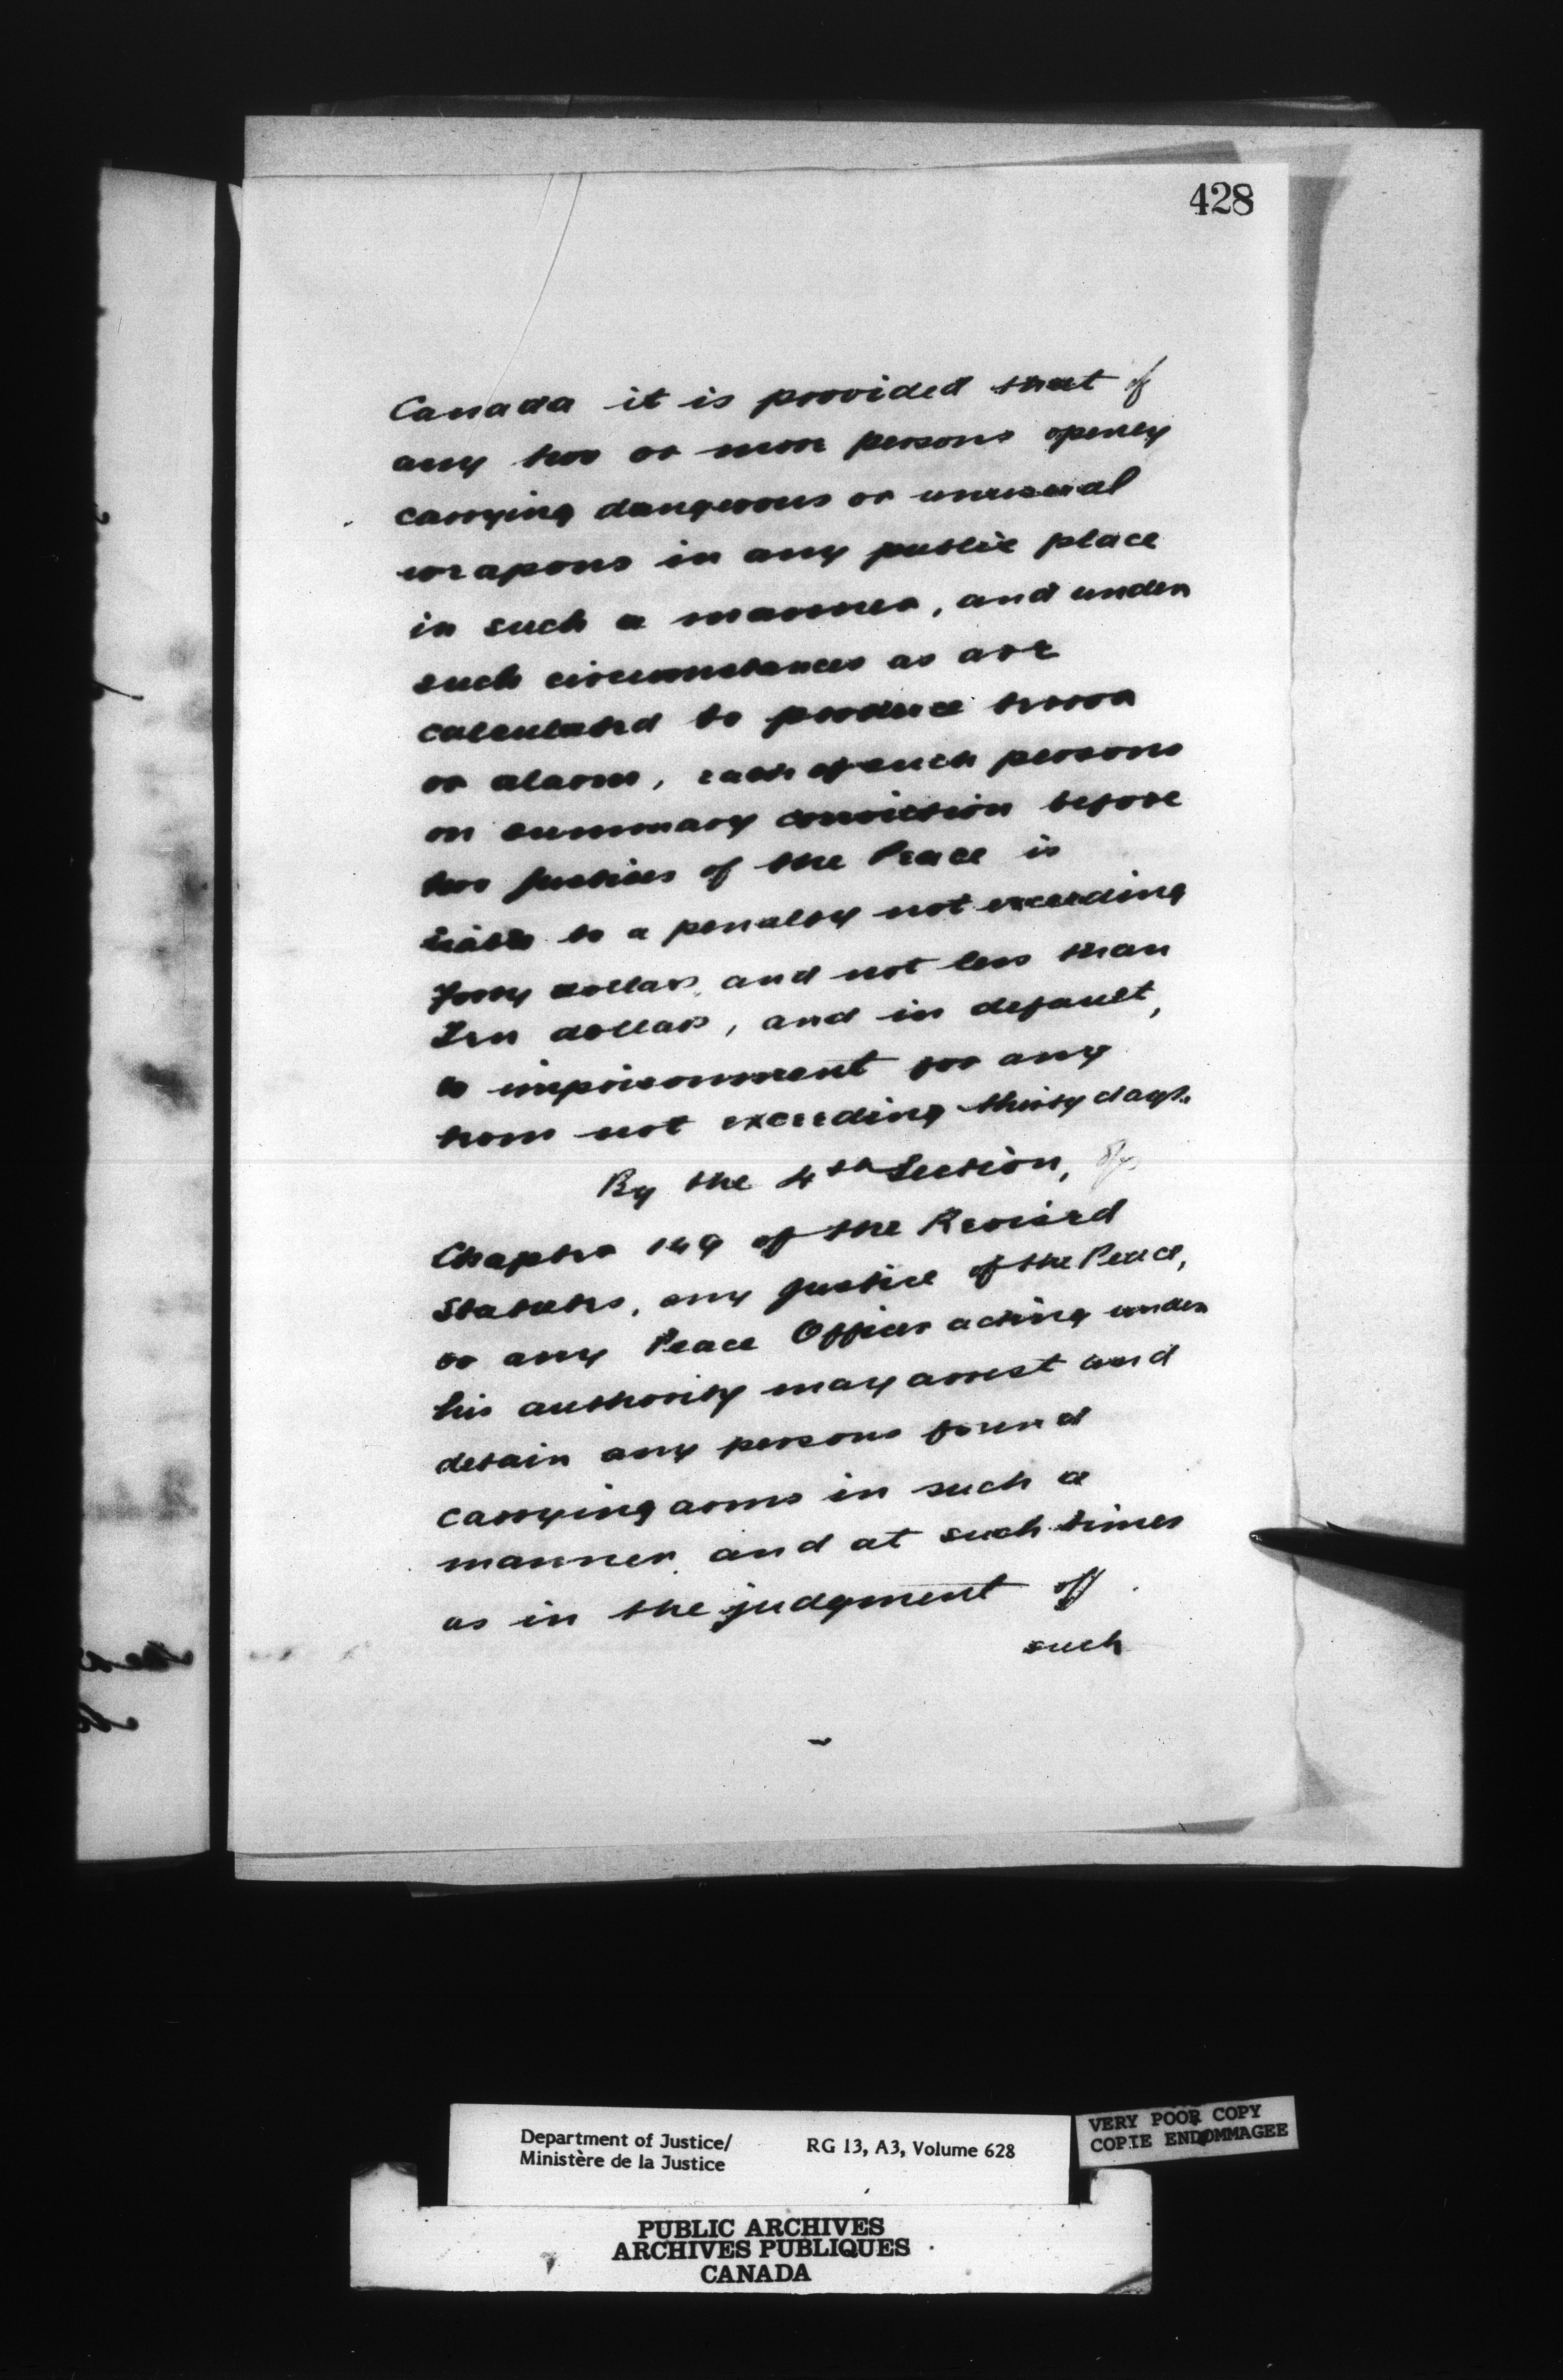 428
Canada it is provided that if
any two or more persons openly
carrying dangerous or unusual
weapons in any public place
in such a manner, and under
such circumstances as are
calculated to produce terror
or alarm, each of such persons
on summary conviction before
two Justices of the Peace is
liable to a penalty not exceeding
Forty dollars and not less than
Ten dollars, and in default,
to imprisonment for any
term not exceeding thirty days.
By the 4th Section, of
Chapter 149 of the Revised
Statutes, any Justice of the Peace,
or any Peace Officer acting under
his authority may arrest and
detain any persons found
carrying arms in such a
manner and at such times
as in the judgment of
such
Department of Justice/
Ministère de la Justice
RG 13, A3, Volume 628
VERY POOR COPY
COPIE ENDOMMAGEE
PUBLIC ARCHIVES
ARCHIVES PUBLIQUES
CANADA